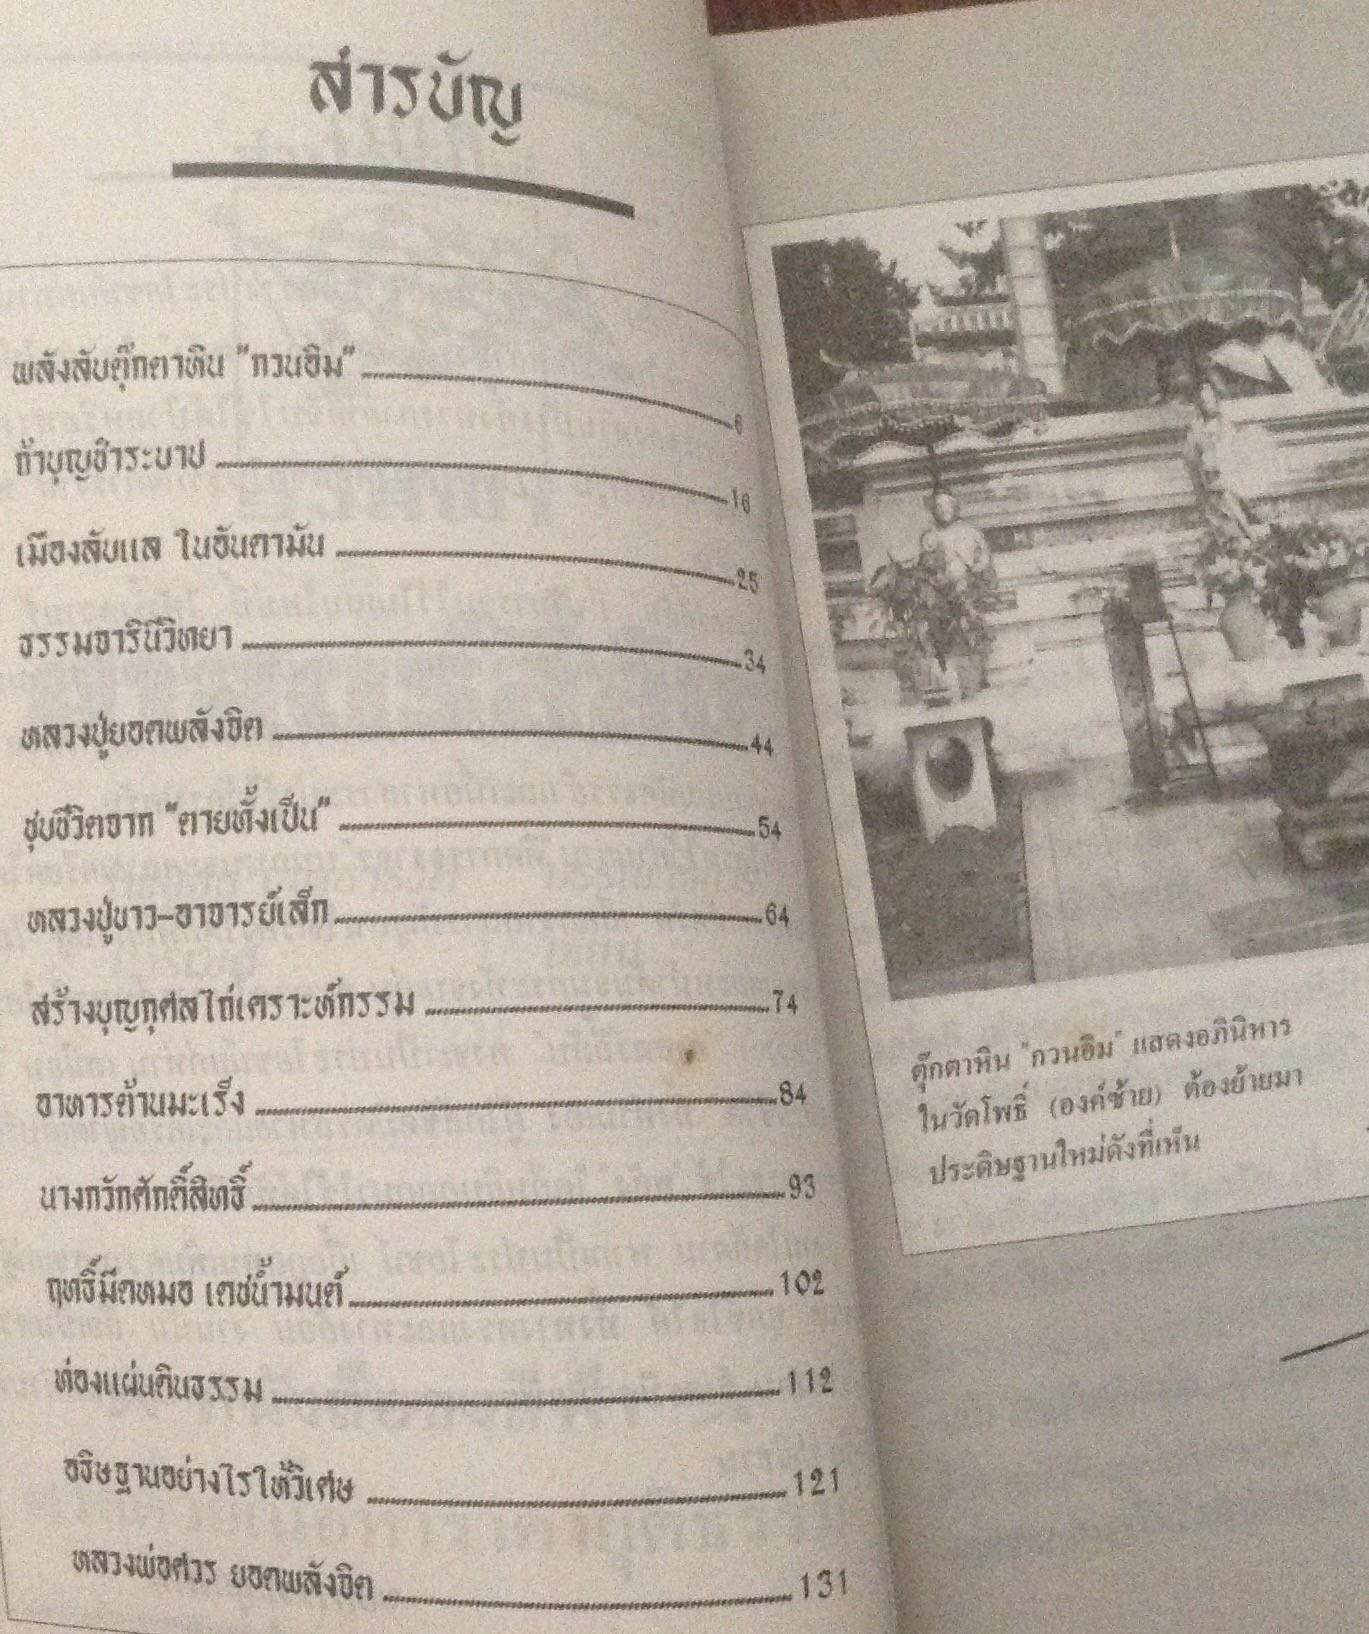 สารบัญ
พลังลับตุ๊กตาหิน "กวนอิม" 6
ถ้ำบุญชำระบาป 16
เมืองลับแล ในอันดามัน 25
ธรรมจารินีวิทยา 34
หลวงปู่ยอดพลังจิต 44
ชุบชีวิตจาก "ตายทั้งเป็น" 54
หลวงปู่ขาว-อาจารย์เล็ก 64
สร้างบุญกุศลไถ่เคราะห์กรรม 74
อาหารต้านมะเร็ง 84
นางกวักศักดิ์สิทธิ์ 93
ฤทธิ์มีดหมอ เดชน้ำมนต์ 102
ท่องแผ่นดินธรรม 112
อธิษฐานอย่างไรให้วิเศษ 121
หลวงพ่อศวร ยอดพลังจิต 131
ตุ๊กตาหิน "กวนอิม" แสดงอภินิหาร
ในวัดโพธิ์ (องค์ซ้าย) ต้องย้ายมา
ประดิษฐานใหม่ดังที่เห็น